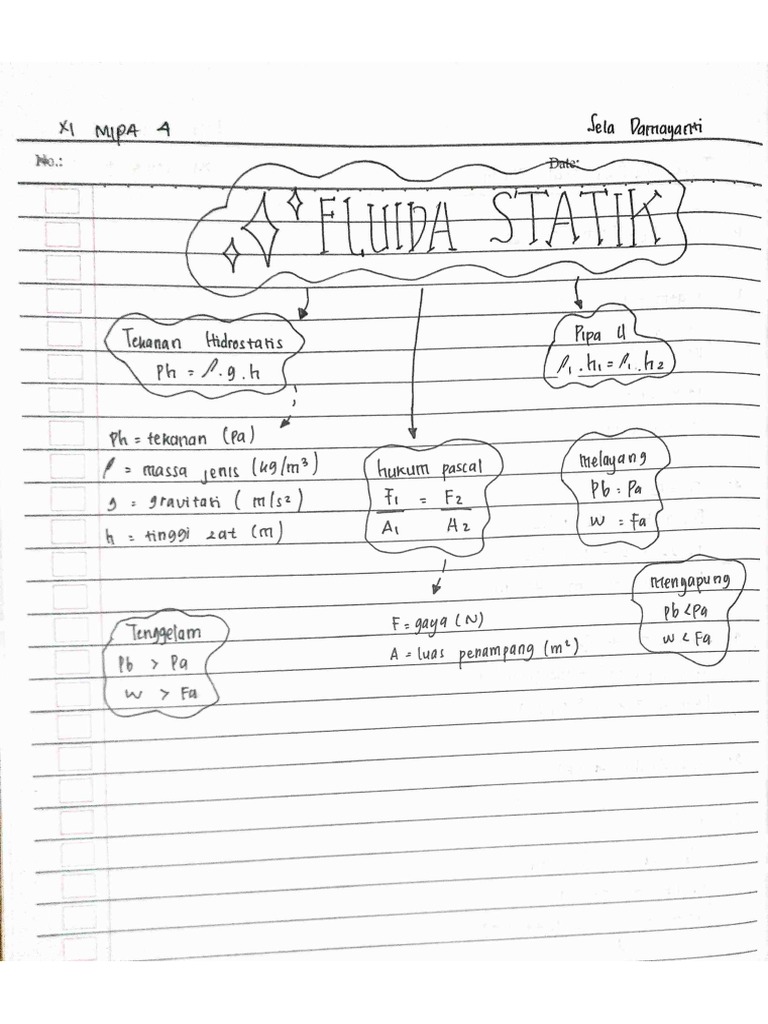 XI MIPA 4
Sela Damayanti
No.:
Date:
FLUIDA STATIK
Tekanan Hidrostatis
Ph = ρ . g . h
Pipa U
ρ1 . h1 = ρ1 . h2
Ph = tekanan (Pa)
ρ = massa jenis (kg/m³)
g = gravitasi ( m/s²)
h = tinggi zat (m)
hukum pascal
F1 = F2
A1 A2
melayang
Pb = Pa
w = Fa
Mengapung
Pb < Pa
w < Fa
F = gaya (N)
A = luas penampang (m²)
Tenggelam
Pb > Pa
w > Fa